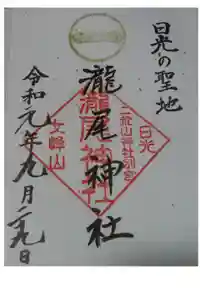 日光の聖地
瀧尾神社
日光
二荒山神社別宮
瀧尾神社
女峰山
令和元年九月二九日